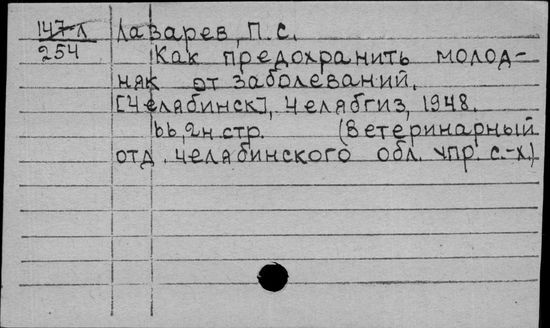 147-л
254
Лазарев, П.С.
Как предохранить молод-
няк от заболеваний.
[Челябинск], Челябгиз, 1948.
66, 2н.стр. (Ветеринарный
отд. Челябинского обл. упр. с.-х.)